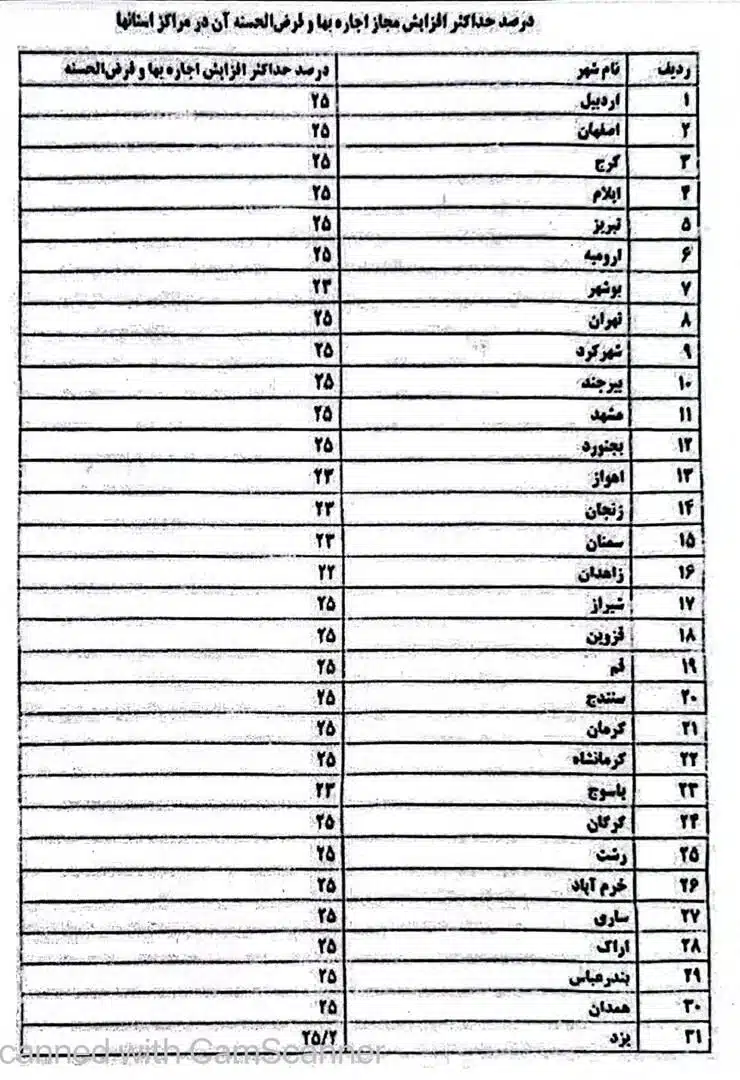 درصد حداکثر افزایش مجاز اجاره بها و قرض‌الحسنه آن در مراکز استانها
ردیف نام شهر درصد حداکثر افزایش اجاره بها و قرض‌الحسنه
۱ اردبیل ۲۵
۲ اصفهان ۲۵
۳ کرج ۲۵
۴ ایلام ۲۵
۵ تبریز ۲۵
۶ ارومیه ۲۵
۷ بوشهر ۲۳
۸ تهران ۲۵
۹ شهرکرد ۲۵
۱۰ بیرجند ۲۵
۱۱ مشهد ۲۵
۱۲ بجنورد ۲۵
۱۳ اهواز ۲۳
۱۴ زنجان ۲۳
۱۵ سمنان ۲۳
۱۶ زاهدان ۲۲
۱۷ شیراز ۲۵
۱۸ قزوین ۲۵
۱۹ قم ۲۵
۲۰ سنندج ۲۵
۲۱ کرمان ۲۵
۲۲ کرمانشاه ۲۵
۲۳ یاسوج ۲۳
۲۴ گرگان ۲۵
۲۵ رشت ۲۵
۲۶ خرم آباد ۲۵
۲۷ ساری ۲۵
۲۸ اراک ۲۵
۲۹ بندرعباس ۲۵
۳۰ همدان ۲۵
۳۱ یزد ۲۵/۲
canned with CamScanner